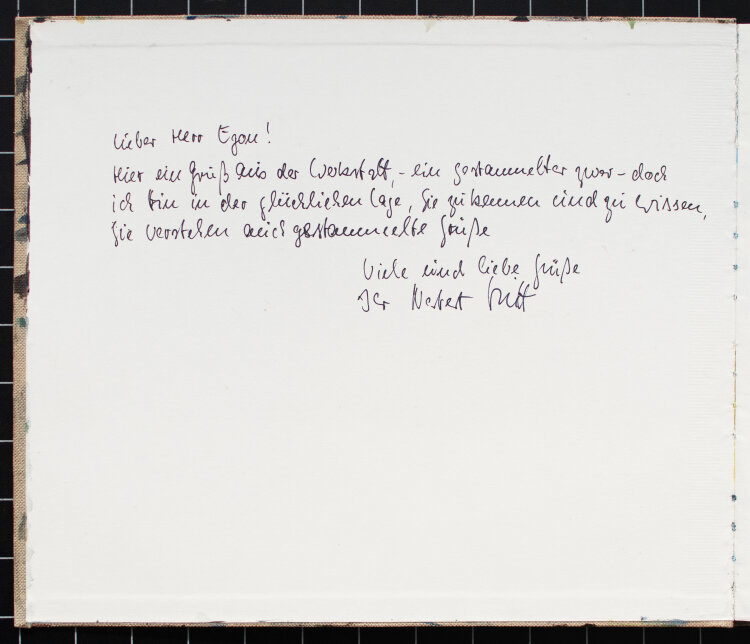 Lieber Herr Egon!
Hier ein Gruß aus der Werkstatt, - ein gestammelter zwar - doch
ich bin in der glücklichen Lage, Sie zu kennen und zu wissen,
Sie verstehen auch gestammelte Grüße
Viele und liebe Grüße
Ihr